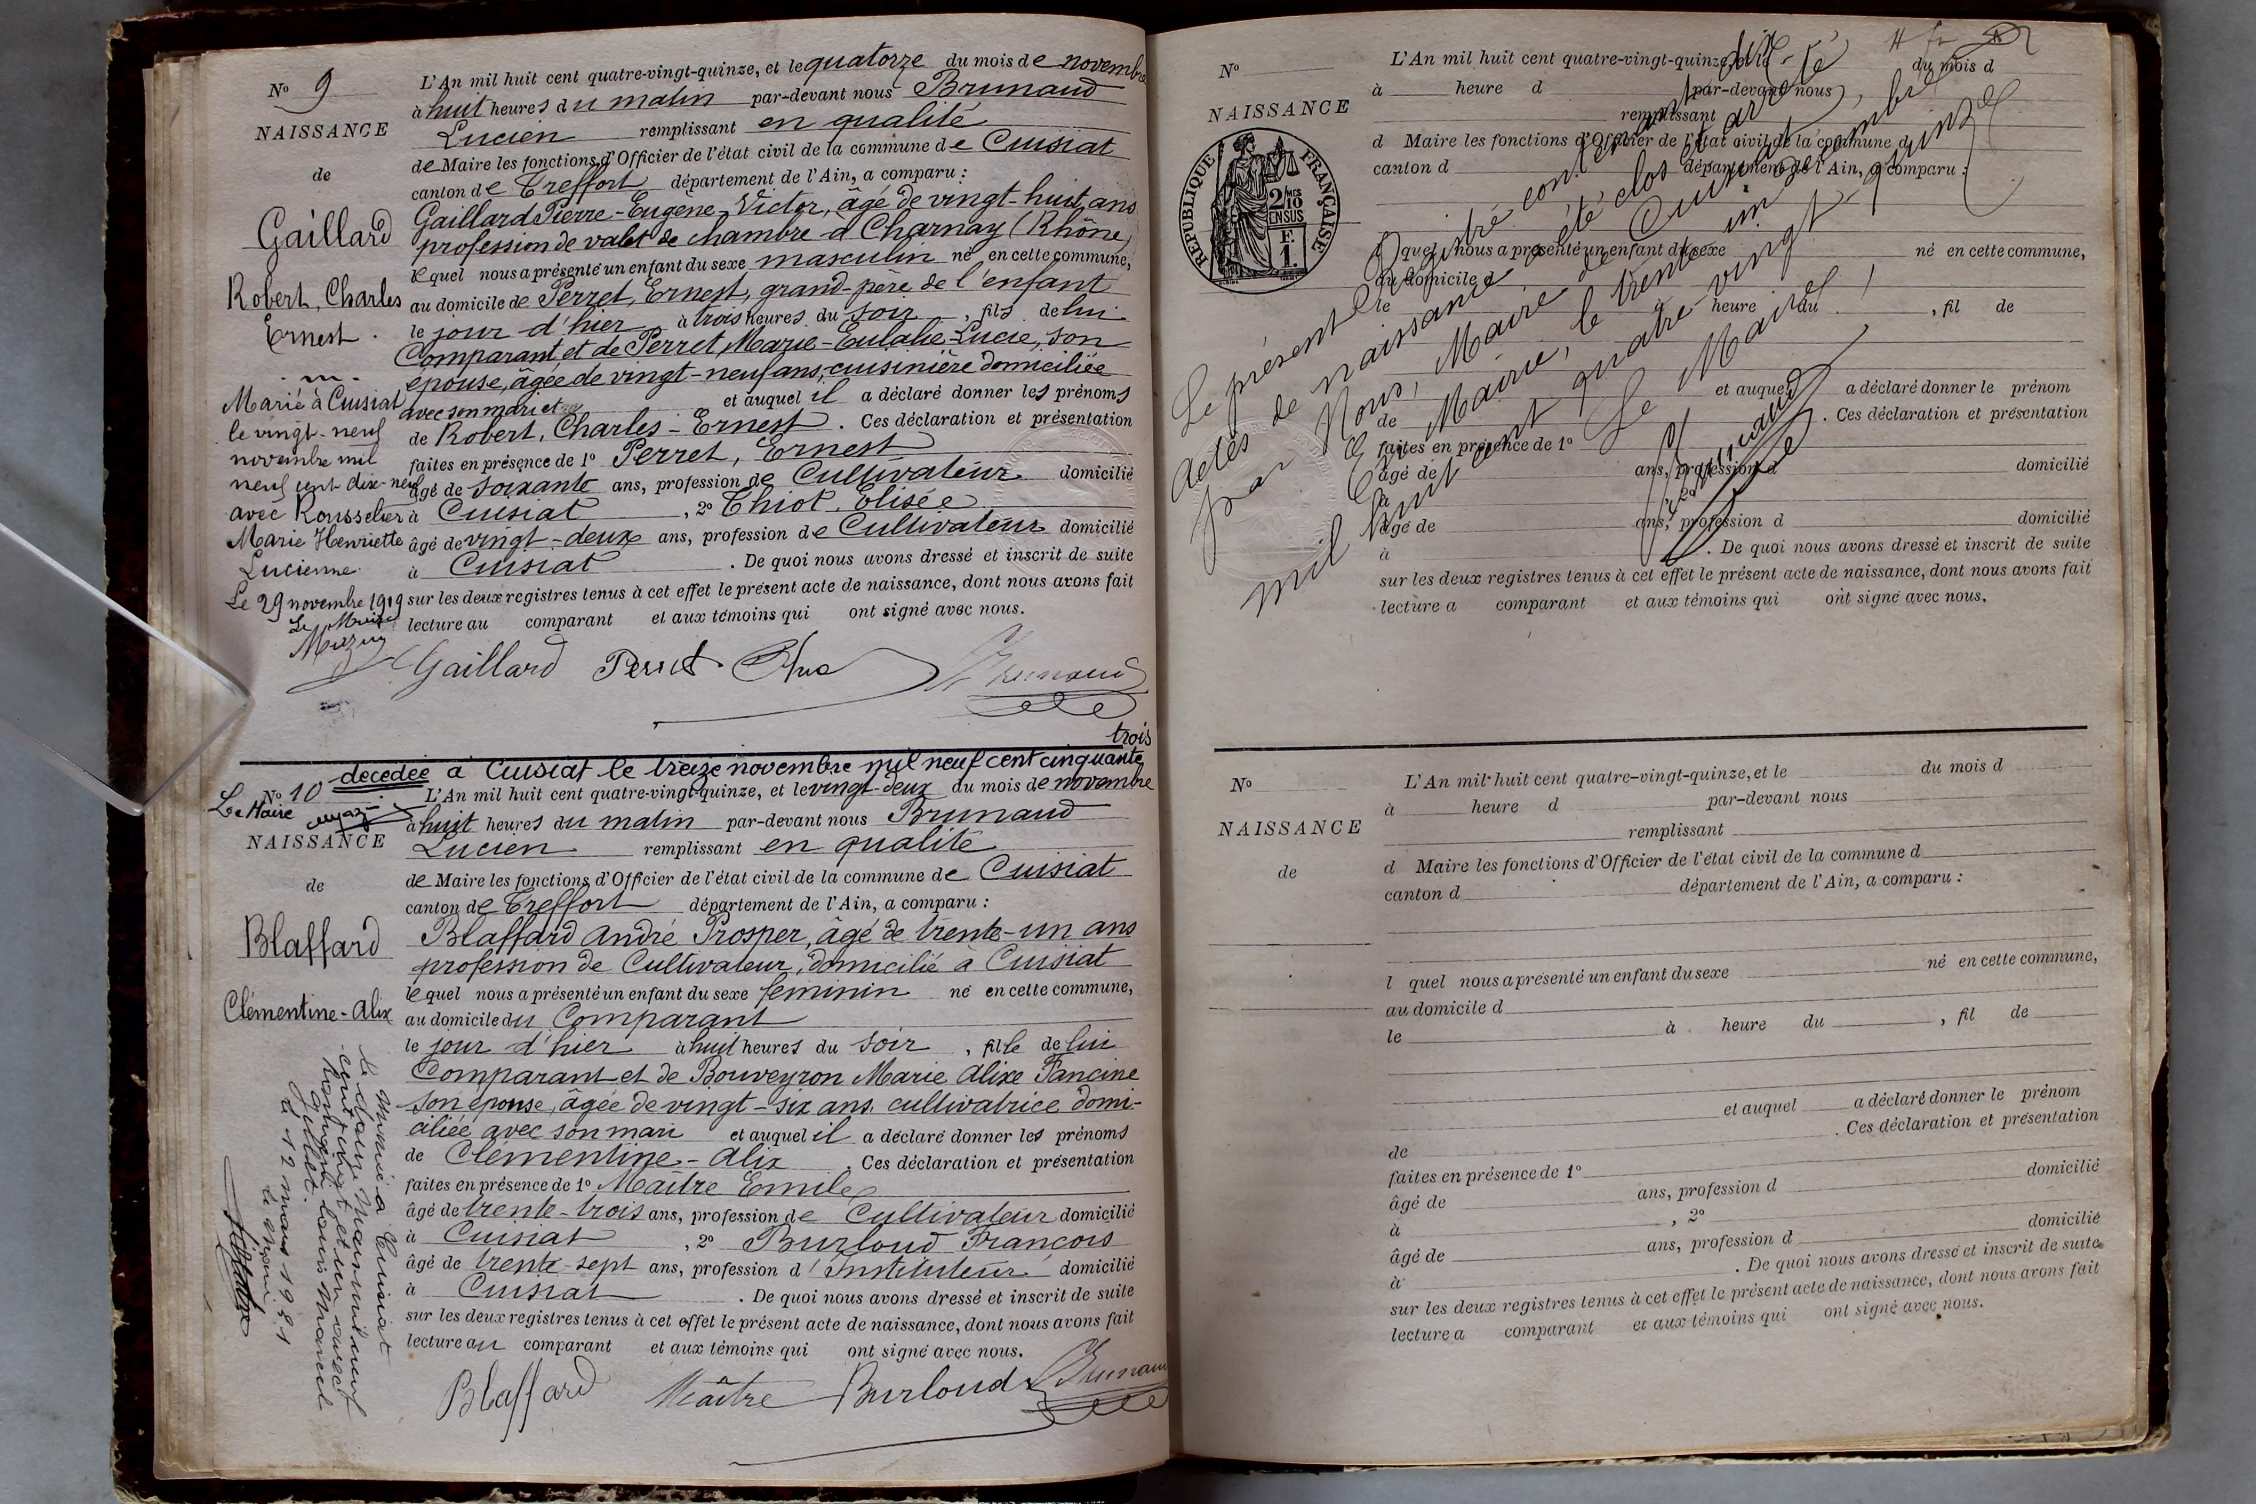 No 9
NAISSANCE
de
Gaillard
Robert, Charles
Ernest.
Marié à Cuisiat
le vingt-neuf
novembre mil
neuf cent dix-neuf
avec Rousselier
Marie Henriette
Lucienne
Le 29 novembre 1919
Le Maire
L'An mil huit cent quatre-vingt-quinze, et le quatorze du mois de novembre
à huit heures du matin par-devant nous Brunaud
Lucien remplissant en qualité
de Maire les fonctions d'Officier de l'état civil de la commune de Cuisiat
canton de Treffort département de l'Ain, a comparu :
Gaillard Pierre-Eugène Victor, âgé de vingt-huit ans
profession de valet de chambre à Charnay (Rhône)
lequel nous a présenté un enfant du sexe masculin né en cette commune,
au domicile de Perret, Ernest, grand-père de l'enfant
le jour d'hier à trois heures du soir, fils de lui
Comparant et de Perret, Marie-Eulalie-Lucie, son
épouse, âgée de vingt-neuf ans, cuisinière domiciliée
avec son mari et et auquel il a déclaré donner les prénoms
de Robert, Charles-Ernest. Ces déclaration et présentation
faites en présence de 1º Perret, Ernest
âgé de soixante ans, profession de Cultivateur domicilié
à Cuisiat, 2º Thiot, Elisée
âgé de vingt-deux ans, profession de Cultivateur domicilié
à Cuisiat. De quoi nous avons dressé et inscrit de suite
sur les deux registres tenus à cet effet le présent acte de naissance, dont nous avons fait
lecture au comparant et aux témoins qui ont signé avec nous.
Gaillard Perret Brunaud
trois
décédée à Cuisiat le treize novembre mil neuf cent cinquante
Le Maire
No 10
NAISSANCE
de
Blaffard
Clémentine-Alix
Mariée à Cuisiat
le douze Mars mil neuf
cent vingt et un avec
Louis Marcel
Le 12 mars 1921
Le Maire
L'An mil huit cent quatre-vingt-quinze, et le vingt-deux du mois de novembre
à huit heures du matin par-devant nous Brunaud
Lucien remplissant en qualité
de Maire les fonctions d'Officier de l'état civil de la commune de Cuisiat
canton de Treffort département de l'Ain, a comparu :
Blaffard André Prosper, âgé de trente-un ans
profession de Cultivateur, domicilié à Cuisiat
lequel nous a présenté un enfant du sexe féminin né en cette commune,
au domicile du Comparant
le jour d'hier à huit heures du soir, fille de lui
Comparant et de Bouveyron Marie Alixe Fancine
son épouse, âgée de vingt-six ans, cultivatrice domi-
ciliée avec son mari et auquel il a déclaré donner les prénoms
de Clémentine-Alix. Ces déclaration et présentation
faites en présence de 1º Maître Emile
âgé de trente-trois ans, profession de Cultivateur domicilié
à Cuisiat, 2º Burloud François
âgé de trente-sept ans, profession d'Instituteur domicilié
à Cuisiat. De quoi nous avons dressé et inscrit de suite
sur les deux registres tenus à cet effet le présent acte de naissance, dont nous avons fait
lecture au comparant et aux témoins qui ont signé avec nous.
Blaffard Maître Burloud Brunaud
No
NAISSANCE
RÉPUBLIQUE FRANÇAISE
2/10
EN SUS
F.
1.
L'An mil huit cent quatre-vingt-quinze, et le du mois d
à heure d par-devant nous
remplissant
d Maire les fonctions d'Officier de l'état civil de la commune d
canton d département de l'Ain, a comparu :
l quel nous a présenté un enfant du sexe né en cette commune,
au domicile d
le à heure du , fil de
et auquel a déclaré donner le prénom
de . Ces déclaration et présentation
faites en présence de 1º
âgé de ans, profession d domicilié
à
âgé de ans, profession d domicilié
à . De quoi nous avons dressé et inscrit de suite
sur les deux registres tenus à cet effet le présent acte de naissance, dont nous avons fait
lecture a comparant et aux témoins qui ont signé avec nous.
Le présent registre contenant dix
actes de naissance a été clos et arrêté
par Nous, Maire de Cuisiat,
En Mairie, le trente un décembre
mil huit cent quatre-vingt-quinze
Le Maire,
Brunaud
No
NAISSANCE
de
L'An mil huit cent quatre-vingt-quinze, et le du mois d
à heure d par-devant nous
remplissant
d Maire les fonctions d'Officier de l'état civil de la commune d
canton d département de l'Ain, a comparu :
l quel nous a présenté un enfant du sexe né en cette commune,
au domicile d
le à heure du , fil de
et auquel a déclaré donner le prénom
de . Ces déclaration et présentation
faites en présence de 1º
âgé de ans, profession d domicilié
à , 2º
âgé de ans, profession d domicilié
à . De quoi nous avons dressé et inscrit de suite
sur les deux registres tenus à cet effet le présent acte de naissance, dont nous avons fait
lecture a comparant et aux témoins qui ont signé avec nous.